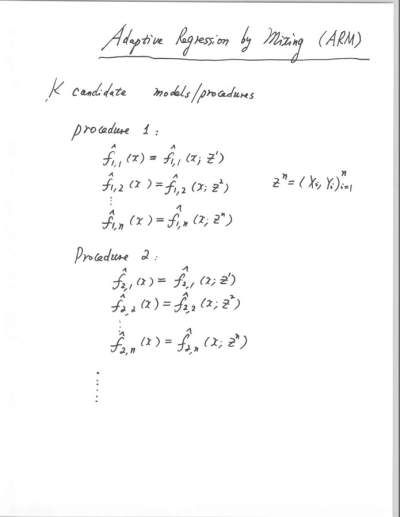 Adaptive Regression by Mixing (ARM)
K candidate models/procedures
procedure 1:
f̂₁,₁(x) = f̂₁,₁(x; z¹)
f̂₁,₂(x) = f̂₁,₂(x; z²)    zⁿ = (Xᵢ, Yᵢ)ⁿᵢ₌₁
⋮
f̂₁,ₙ(x) = f̂₁,ₙ(x; zⁿ)
Procedure 2:
f̂₂,₁(x) = f̂₂,₁(x; z¹)
f̂₂,₂(x) = f̂₂,₂(x; z²)
⋮
f̂₂,ₙ(x) = f̂₂,ₙ(x; zⁿ)
⋮